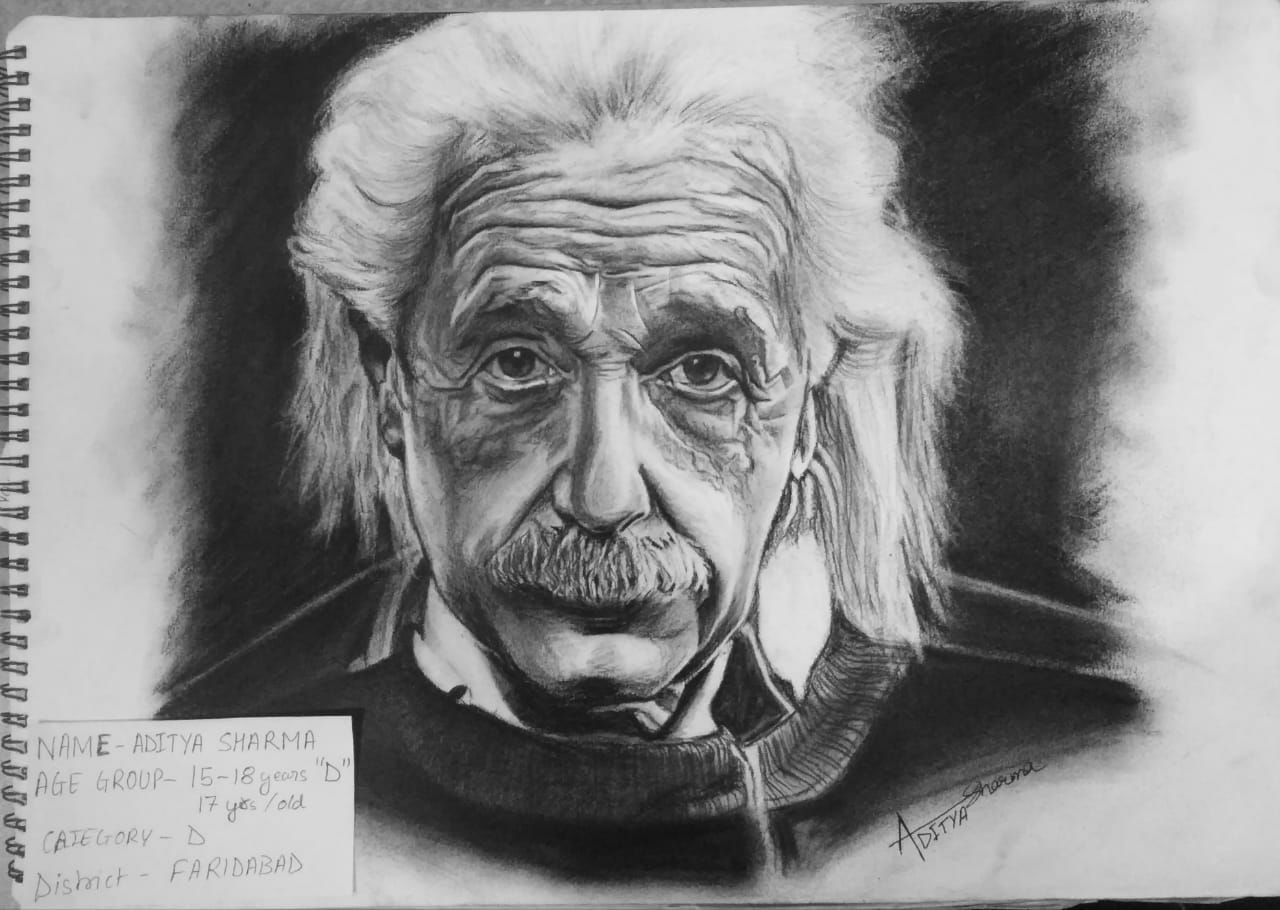 NAME - ADITYA SHARMA
AGE GROUP - 15-18 years "D"
17 yrs/old
CATEGORY - D
District - FARIDABAD
ADITYA Sharma